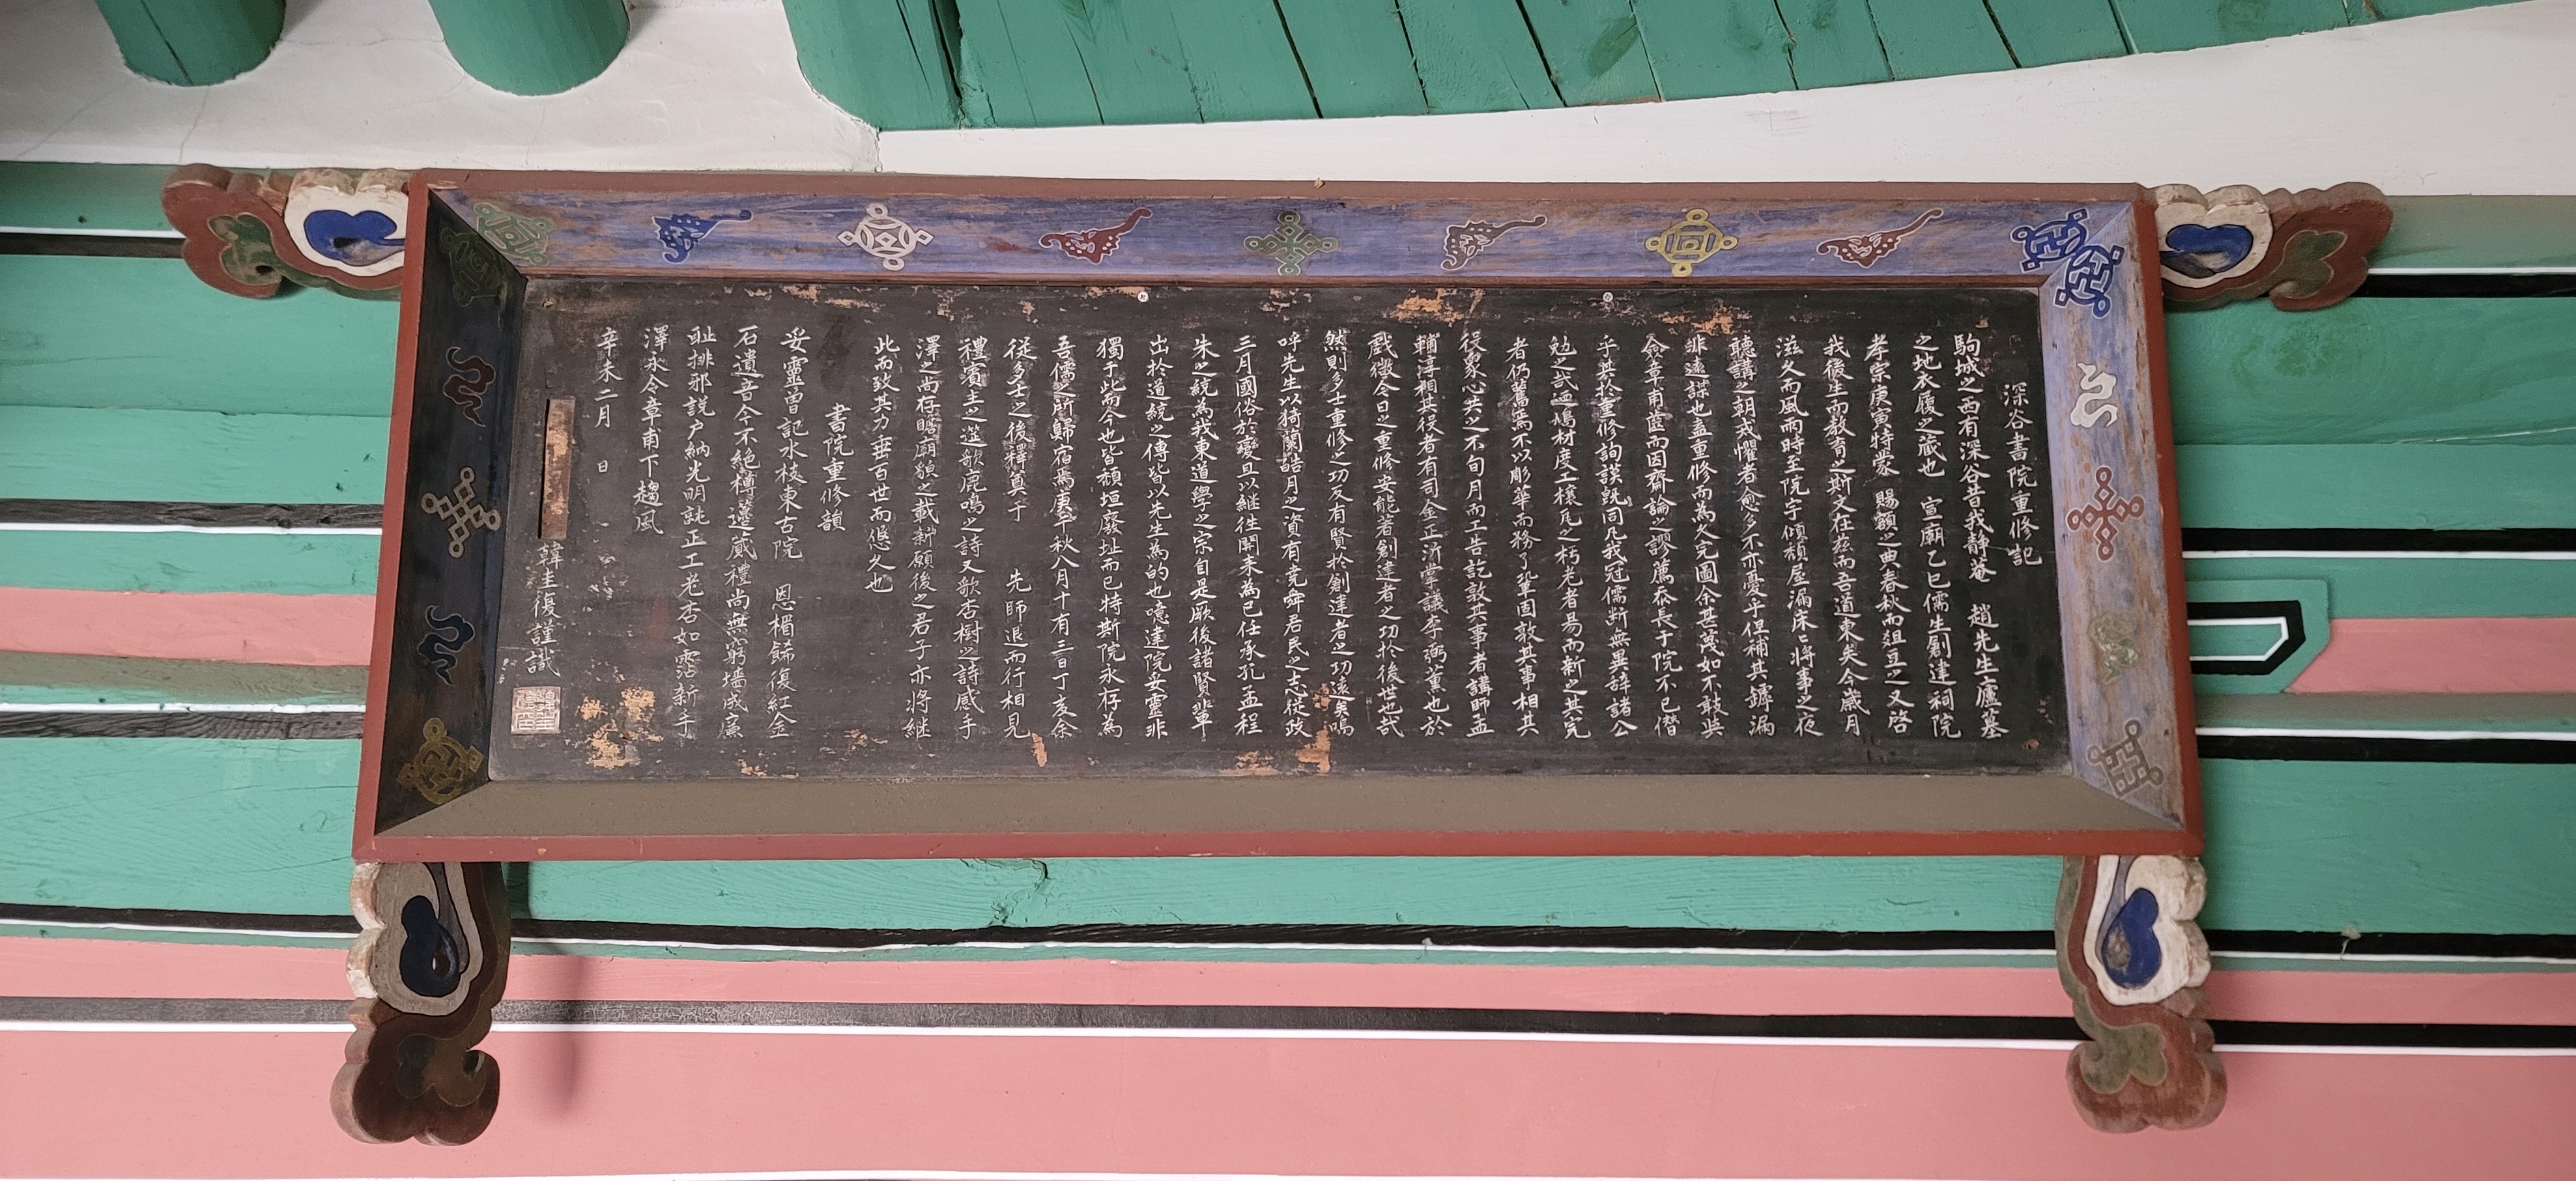 深谷書院重修記
駒城之西有深谷昔我靜菴 趙先生廬墓
之地衣履之藏也 宣廟乙巳儒生創建祠院
孝宗庚寅特蒙 賜額之典春秋而俎豆之又啓
我後生而敎育之斯文在玆而吾道東矣今歲月
滋久而風雨時至院宇傾頹屋漏床床將事之夜
聽講之朝戎懼者愈多不亦憂乎但補其罅漏
非遠謀也盖重修而爲久完圖余甚蔑如不敢與
僉章甫齒而因齋論之謬薦忝長于院不已僭
乎其於重修詢謨旣同凡我冠儒斷無異辭諸公
勉之哉迺鳩材度工樑瓦之朽老者易而新之其完
者仍舊焉不以彫華而務了鞏固敦其事相其
役衆心共之不旬月而工告訖敦其事者講師孟
輔淳相其役者有司金正濟掌議李弼薰也於
戱微今日之重修安能若創建者之功於後世也哉
然則多士重修之功反有賢於創建者之功遠矣嗚
呼先生以猗蘭皓月之資有堯舜君民之志從政
三月國俗於變且以繼徃開来爲已任承孔孟程
朱之統爲我東道學之宗自是厥後諸賢輩
出於道統之傳皆以先生爲的也噫建院妥靈非
獨于此而今也皆頹垣廢址而已特斯院永存爲
吾儒之所歸宿焉庚午秋八月十有三日丁亥余
從多士之後釋奠于 先師退而行相見
禮賓主之筵歌鹿鳴之詩又歌杏樹之詩感手
澤之尚存瞻廟貌之載新願後之君子亦將継
此而致其力垂百世而悠久也
書院重修韻
妥靈曽記水枝東古院 恩楣餙復紅金
石遺音今不絶樽籩蕆禮尚無窮墻成廉
耻排邪説户納光明詵正工老杏如霑新手
澤永令章甫下趨風
辛未二月 日
韓圭復謹識